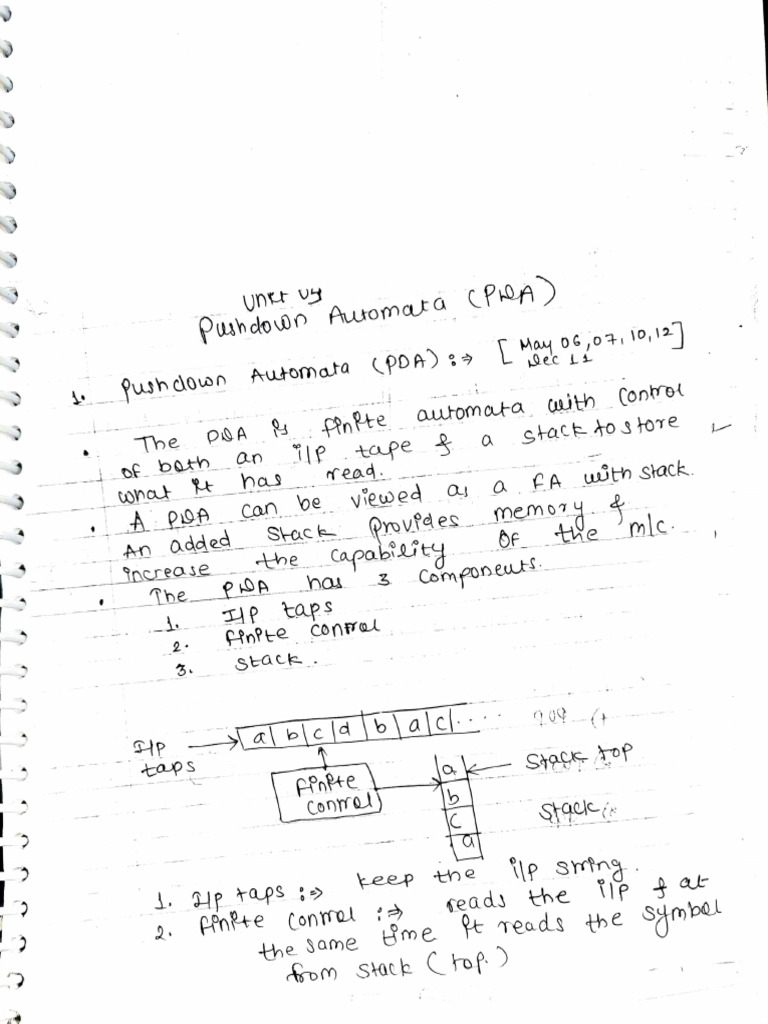 Unit
Pushdown Automata (PDA)
1. Pushdown Automata (PDA) :⇒ [May 06, 07, 10, 12]
Dec 11
• The PDA is finite automata with control
of both an i/p tape & a stack to store
what it has read.
• A PDA can be viewed as a FA with stack.
An added stack provides memory &
increase the capability of the m/c.
• The PDA has 3 components.
1. I/P taps
2. finite control
3. stack.
I/P
taps
a b c d b a c ....
finite
control
a
b
c
a
stack top
stack
1. I/p taps :⇒ keep the i/p string.
2. finite control :⇒ reads the i/p & at
the same time it reads the symbol
from stack (top.)